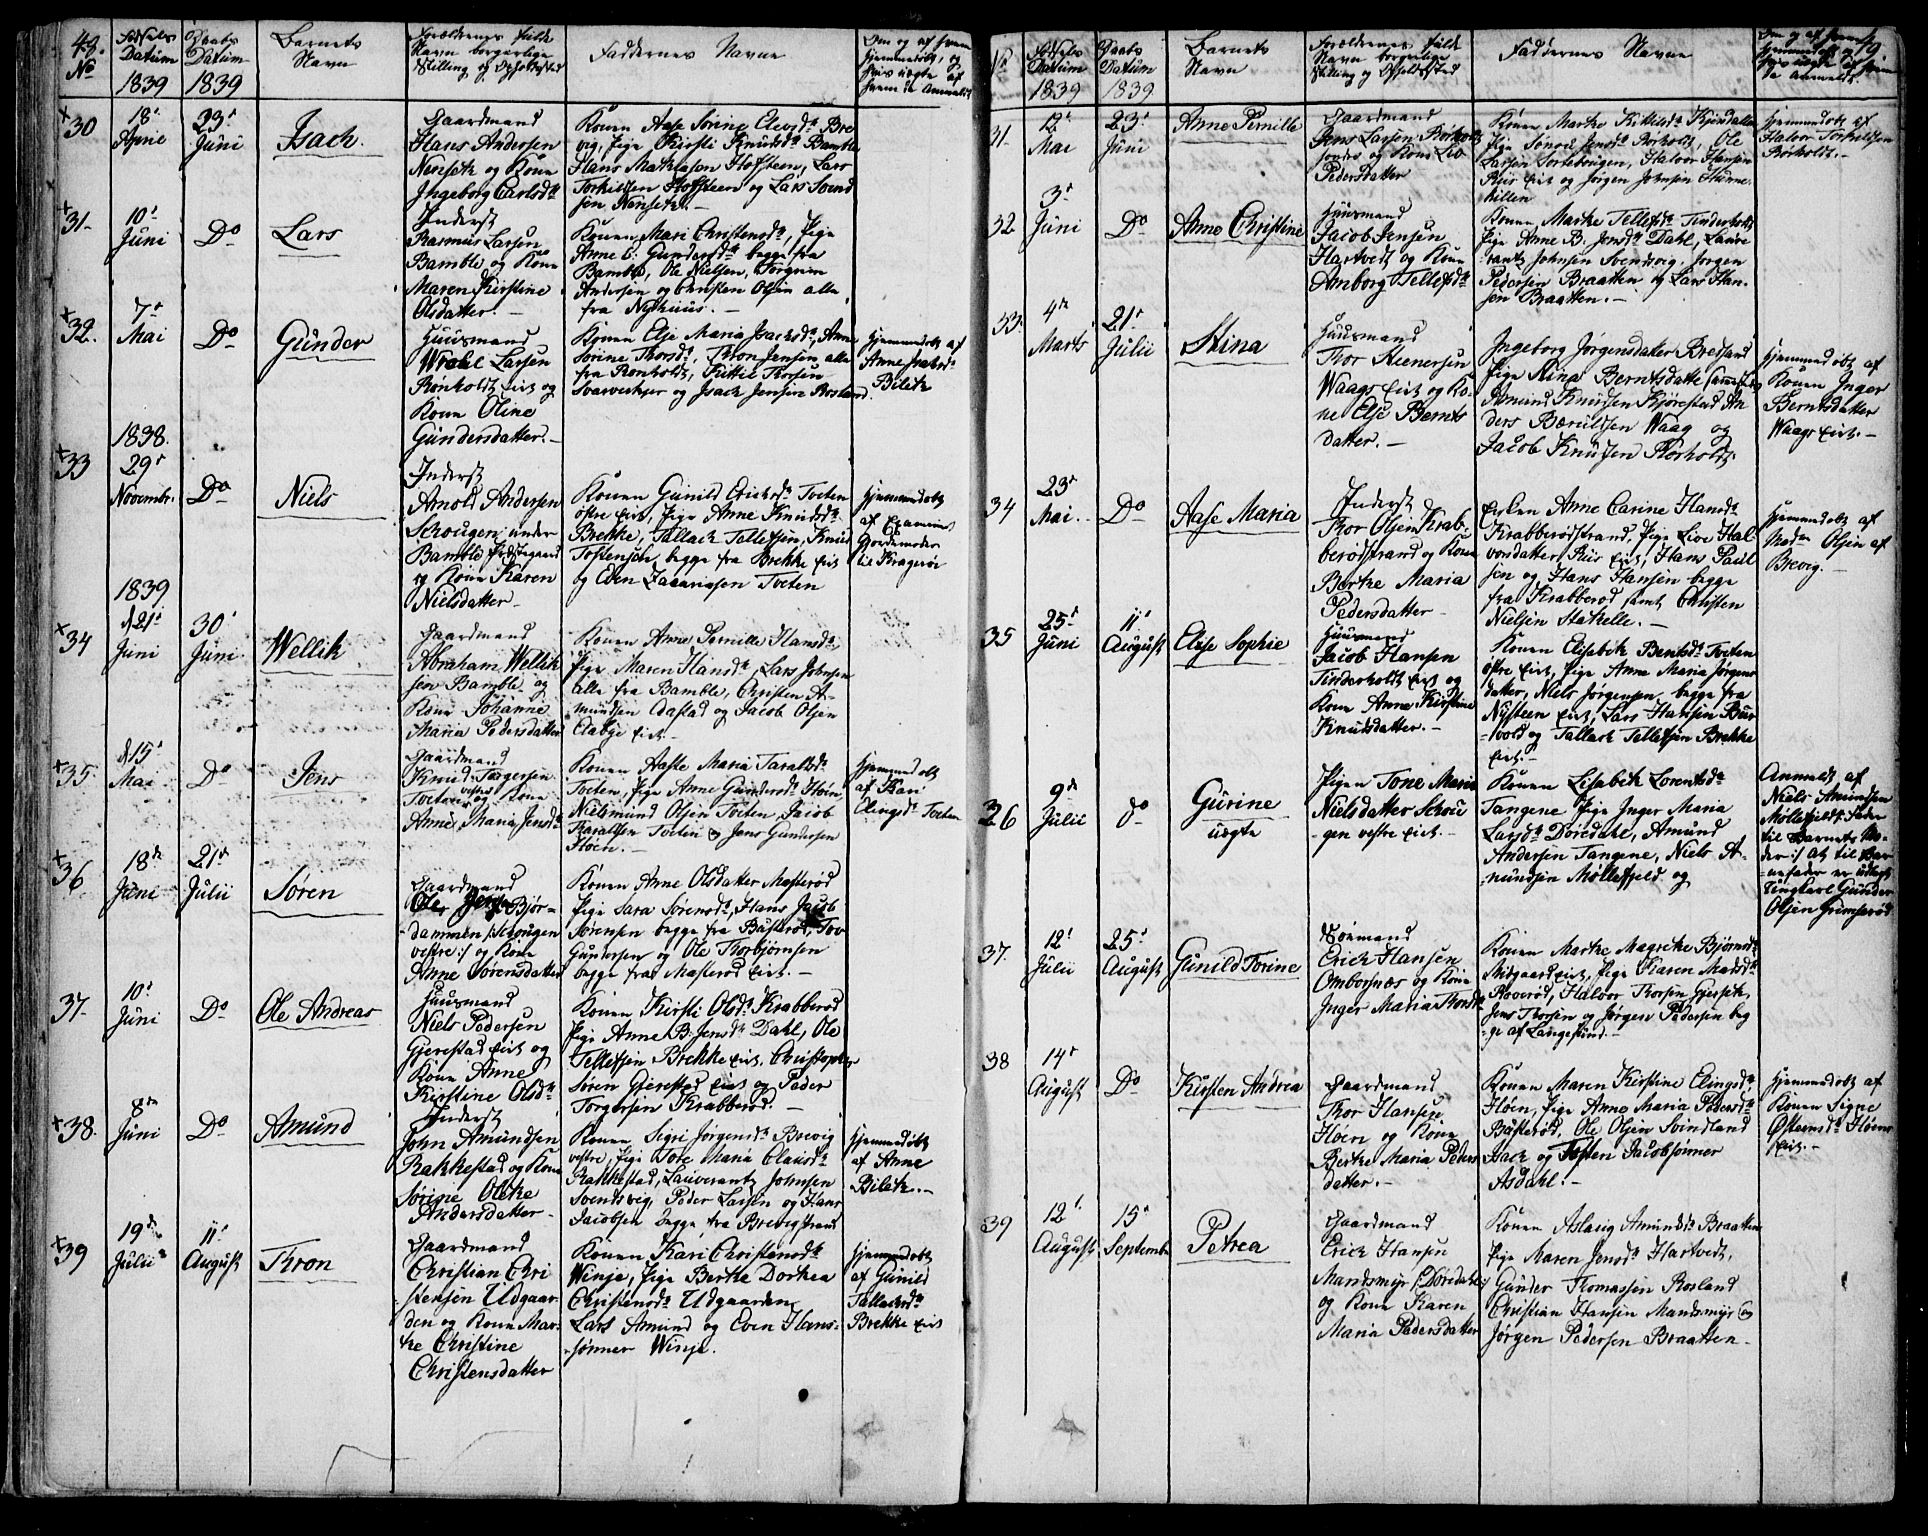 48.
No
Fødsels
Datum
1839
Daabs
Datum
1839
Barnets
Navn
Forældrenes fulde
Navn borgerlige
Stilling og Opholdssted
Faddernes Navne
Om og af hvem
hjemmedøbt, og
hvis uægte af
hvem da Anmeldt
+30
18de
April
23de
Juni
Isach.
Gaardmand
Hans Andersen
Nenseth og Kone
Ingeborg Carlsdtr
Konen Aase Sørine Elevsdtr Bre
vig, Pige Kirsti Knudsdtr Bamble
Hans Mathiason Hofsteen, Lars
Torkildsen Hofsteen og Lars Svend
sen Nenseth.
+31
10de
Juni
Do
Lars
Inderst
Rasmus Larsen
Bamble og Kone
Maren Kirstine
Olsdatter.
Konen Mari Christensdtr, Pige
Anne E. Gundersdtr begge fra
Bamble, Ole Nielsen, Torgrim
Andersen og Christen Olsen alle
fra Nyhuus.
+32.
7de
Mai
Do
Gunder
Huusmand
Wrold Larsen
Rønholdt Eiet og
Kone Oline
Gundersdatter.
Konen Else Maria Isachsdtr, Anne
Sørine Thorsdtr, Thron Jensen alle
fra Ronholdt, Kittil Thorsen
Svarverkjer og Isach Jensen Rosland
hjemmedøbt af
Anne Isachsdtr
Bilith
1838.
+33
29de
Novembr.
Do
Niels
Inderst
Arnold Andersen
Scrougen under
Bamble Præstegaard
og Kone Karen
Nielsdatter
Konen Gunild Erichsdtr Tveten
østre Eiet, Pige Anne Knudsdtr
Brekke, Tallach Tellefsen, Knud
Tostensøn, begge fra Brekke Eiet
og Even Zacariasen Tveten
hjemmedøbt
af Examinet
Gjordemoder
Lie Kragerøe
1839
+34
d21de
Juni
30de
Juni
Wellik
Gaardmand
Abraham Wellik
sen Bamble og
Kone Johanne
Maria Pedersdatter
Konen Anne Pernille Hansdtr
Pige Maren Hansdtr, Lars Johnsen
alle fra Bamble, Christen A-
mundsen Aafstad og Jacob Olsen
Aabye Eiet
+35.
d15de
Mai
Do
Jens
Gaardmand
Knud Torgersen
Tveten vestre og Kone
Anne Maria Jensdtr
Konen Aaste Maria Taraldsdtr
Tveten, Pige Anne Gundersdtr Høen
Nielsmund Olsen Tveten Jacob
Taraldsen Tveten og Jens Gundersen
Høen.
hjemmedøbt
af Kari
Elingsdtr Tveten
+36.
18de
Juni
21de
Julii
Søren
Gaardmand
Ole Bjør-
dammen /:Scrougen
vestre:/ og Kone
Anne Sørensdatter
Konen Anne Olsdatter Masterød
Pige Sara Sørensdtr, Hans Jacob
Sørensen begge fra Basterød, Tov
Gundersen og Ole Thorbjørnsen
begge fra Masterød Eiet.
37.
10de
Juni
Do
Ole Andreas
Huusmand
Niels Pedersen
Gjerestad Eiet og
Kone Anne
Kirstine Olsdtr
Konen Kirsti Olsdtr Krabberød
Pige Anne B. Jensdtr Dahl, Ole
Tellefsen Brekke Eiet, Christopher
Søren Gjerestad Eiet og Peder
Torgersen Krabberød.
+38.
8de
Juni
Do
Amund
Inderst
John Amundsen
Rakkestad og Kone
Sørine Olike
Andersdatter
Konen Sigri Jørgensdtr Brevig
vestre, Pige Tore Maria Clausdtr
Rakkestad, Lauverantz Johnsen
Svendsvig, Peder Larsen og Hans
Jacobsen begge fra Brevigstrand
hjemmedøbt
af Anne
Bilith.
+39
19de
Julii
11te
August
Thron
Gaardmand
Christian Chri
stensen Udgaar-
den og Kone Mar-
the Christine
Christensdatter
Konen Kari Christensdtr
Winje, Pige Berthe Dorthea
Christensdtr Udgaarden
Lars Amund og Even Hans-
sønner Winje.
hjemmedøbt
af Gunild
Tallachsdtr
Brekke Eiet
No
Fødsels
Datum
1839
Daabs
Datum
1839
Barnets
Navn
Forældrenes fulde
Navn borgerlige
Stilling og Opholdssted
Faddernes Navne
Om og af hvem
hjemmedøbt og
hvis uægte af hvem
da Anmeldt.
49
31.
12te
Mai
23de
Juni
Anne Pernille
Gaardmand
Jens Larsen Rørholt
fordes og Kone Liv
Pedersdatter
Konen Marthe Kittilsdtr Kjendalen
Pige Jensdtr Rørholt, Ole
Larsen Sortebougen, Halvor Hansen
Riis Eiet og Jørgen Johnsen Hume-
killen
hjemmedøbt af
Halvor Torkildsen
Rørholt.
32
3de
Juni
Do
Anne Christine
Huusmand
Jacob Jensen
Hartvedt og Kone
Amborg Tellefsdtr
Konen Marthe Tellefsdtr Tinderholt
Pige Anne B. Jensdtr Dahl, Lauve
rantz Johnsen Svendsvig, Jørgen
Pedersen Braatten og Lars Han-
sen Braatten.
33.
4de
Marts
21de
Julii
Stina
Huusmand
Thor Steenersen
Waags Eiet og Ko-
ne Else Bernts
datter.
Ingeborg Jørgensdatter Bredsand
Pige Stina Berntsdatter sammesteds
Asmund Knudsen Kjørestad An
ders Bærulfsen Waag og
Jacob Knudsen Rørholt
hjemmedøbt af
Konen Inger
Berntsdatter
Waags Eiet.
34
23de
Mai.
Do
Aase Maria
Inderst
Thor Olsen Krab-
berødstrand og Kone
Berthe Maria
Pedersdatter
Enken Anne Carine Hansdtr
Krabberødstrand, Pige Live Hal
vorsdatter Riis Eiet, Hans Paul
sen og Hans Hansen begge
fra Krabberød samt Christen
Nielsen Stathelle.
hjemmedøbt af
Madm Olsen af
Brevig.
35
25de
Juni
11te
August
Elise Sophie
Huusmand
Jacob Hansen
Tinderholt Eiet og
Kone Anne Kirstine
Knudsdatter.
Konen Elisabeth Bentsdtr Tveten
østre Eiet, Pige Anne Maria Jørgens
datter, Niels Jørgensen begge fra
Nysteen Eiet, Lars Hansen Bur
vold og Tallach Tellefsen Brekke
Eiet.
36
9de
Julii
do
Gurine
uægte
Pigen Tone Maria
Nielsdatter Scrou
gen vestre Eiet.
Konen Lisabeth Lorentsdtr
Tangene Pige Inger Maria
Larsdtr Doredahl, Amund
Andersen Tangene, Niels A-
mundsen Møllefjeld og
Anmeldt af
Niels Amundsen
Møllefjeld: Fader
til Barnets Mo-
der:/ at til Bar
nefader er udlagt
Ungkarl Gunder
Olsen Grimsrød
37.
12te
Julii
25de
August
Gunild Torine
Sømand
Erich Hansen
Ombornæs og Kone
Inger Maria Thorsdtr
Konen Marthe Magrethe Bjørnsdtr
Midgaard Eiet, Pige Karen Madsdtr
Roverød, Halvor Thorsen Gjerseth,
Jens Thorsen og Jørgen Pedersen beg
ge af Langesund.
38
14de
August
Do
Kirsten Andrea
Gaardmand
Thor Hansen
Høen og Kone
Berthe Maria Peders
datter.
Konen Maren Kirstine Elingsdtr
Høen, Pige Anne Maria Pedersdtr
Basterød, Ole Olsen Svindland
Isach og Tosten Jacobsønner
Asdahl.
hjemmedøbt af
Konen Signe
Østensdtr Høens
Eiet.
39
12te
August
15de
Septembr
Petrea
Gaardmand
Erich Hansen
Mandsmyr /:Doredahl:/
og Kone Karen
Maria Pedersdatter
Konen Aslaug Amundsdtr Braatten
Pige Maren Jensdtr Hartvedt,
Gunder Thomassen Rosland
Christian Hansen Mandsmyr og
Jørgen Pedersen Braatten